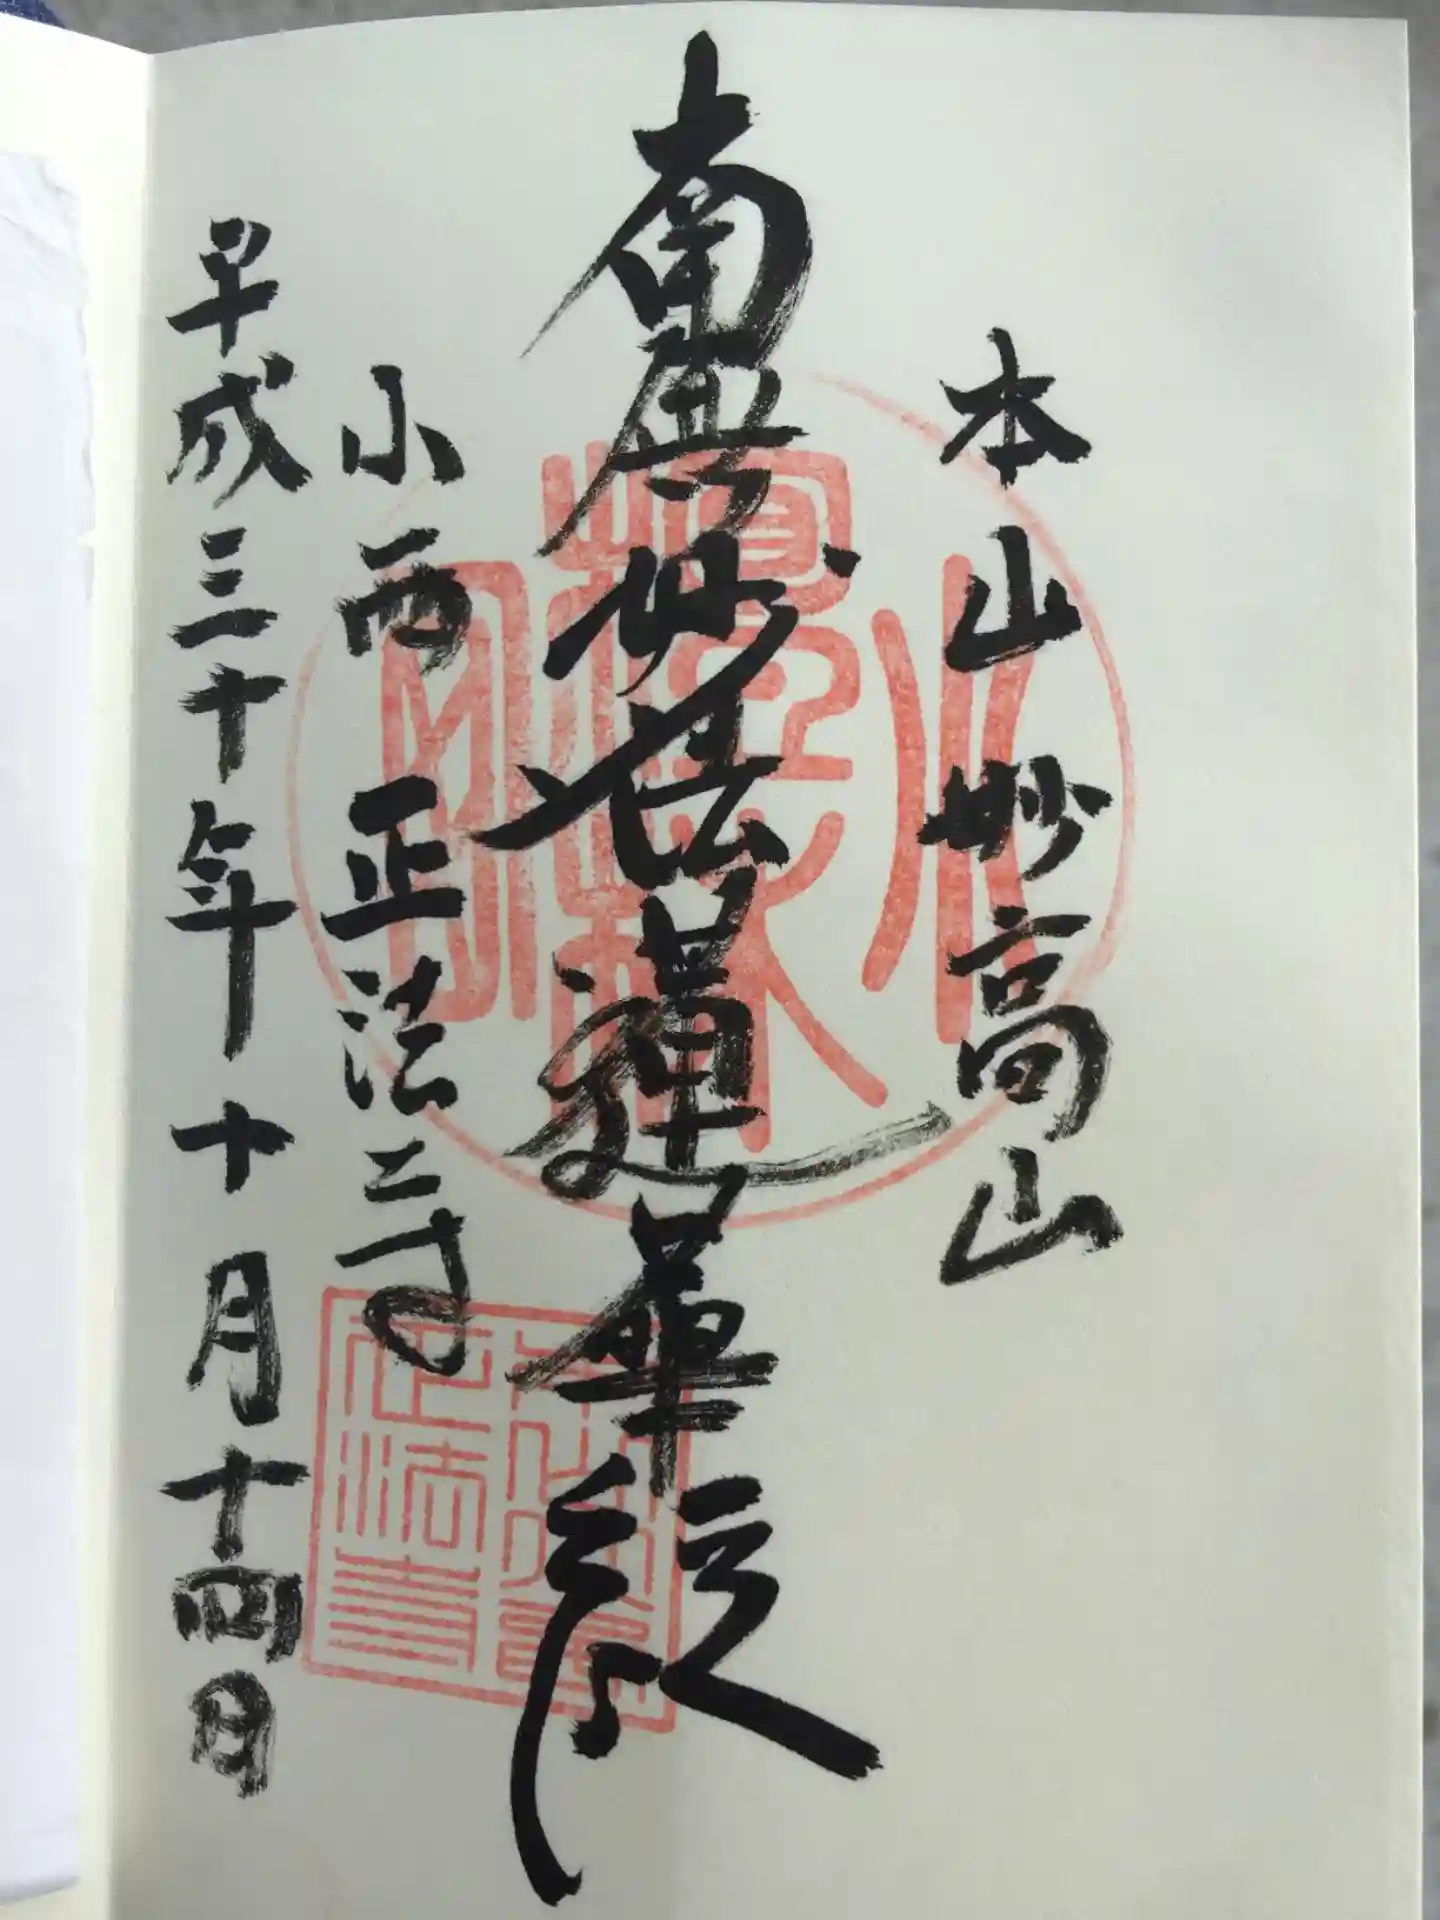 本山 妙高山
南無妙法蓮華経
小西 正法寺
平成三十年十月十四日
正法寺